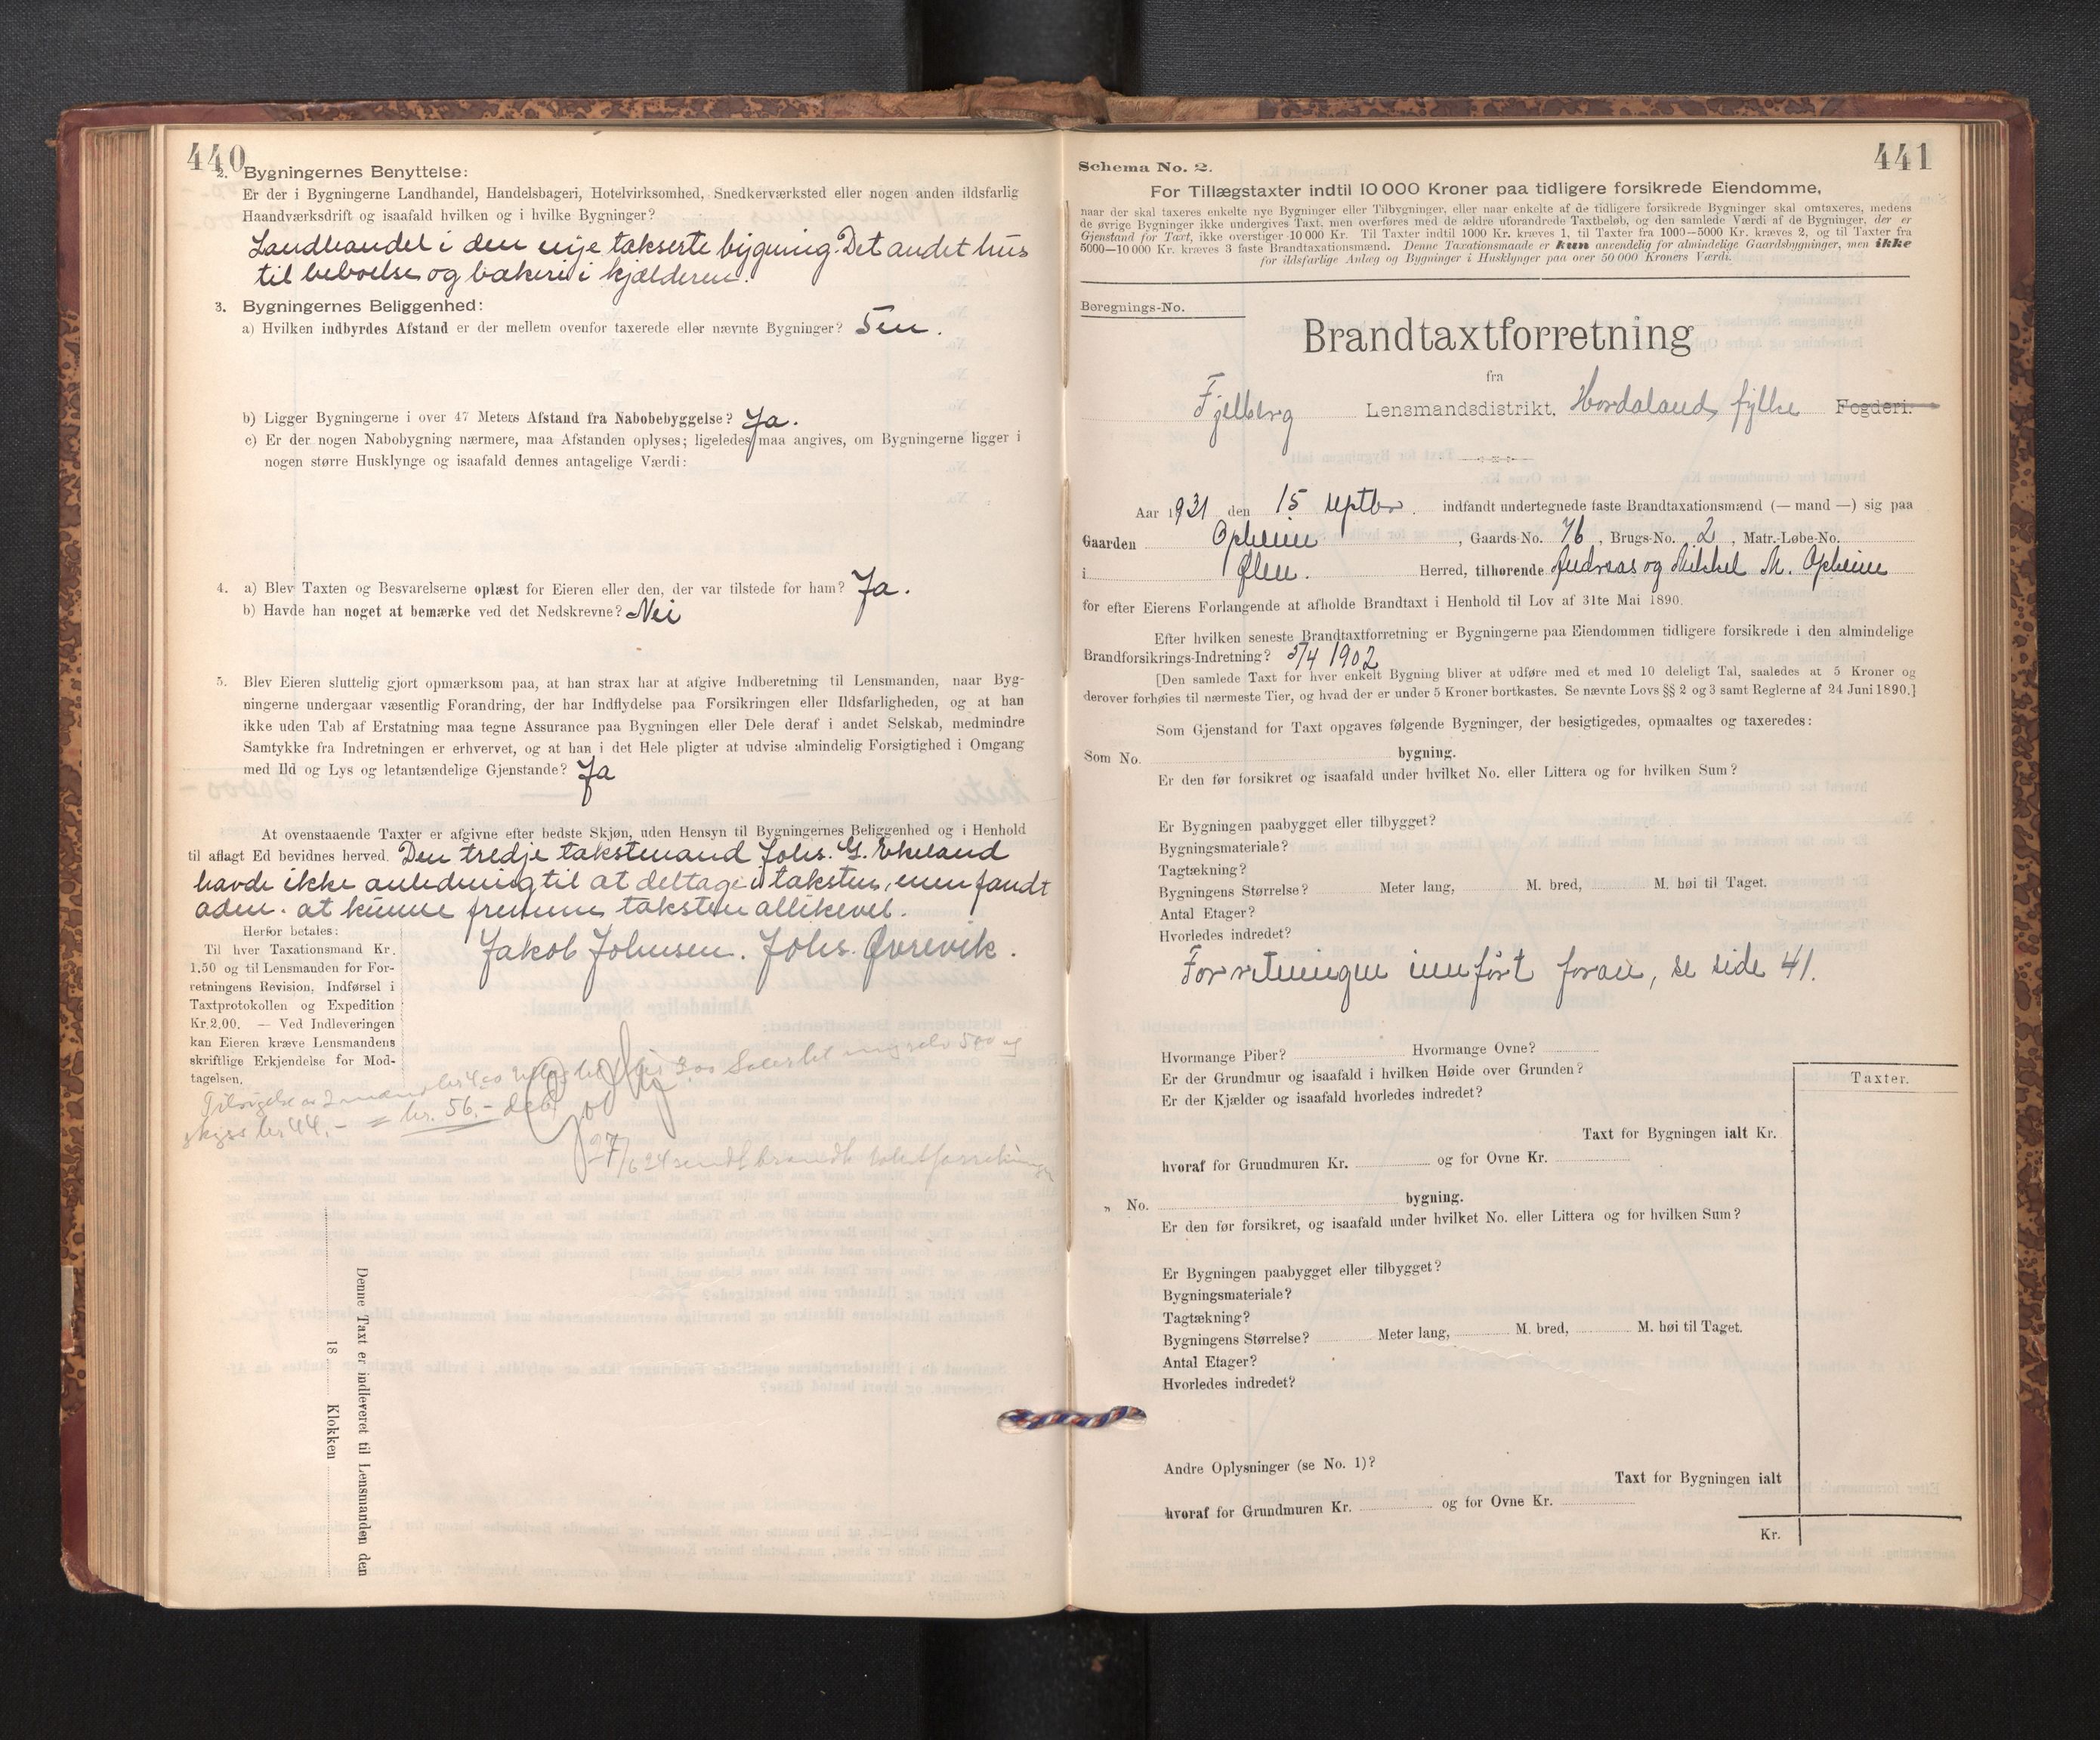 440
2. Bygningernes Benyttelse:
Er der i Bygningerne Landhandel, Handelsbageri, Hotelvirksomhed, Snedkerværksted eller nogen anden ildsfarlig
Haandværksdrift og isaafald hvilken og i hvilke Bygninger?
Landhandel i den nye takserte bygning. Det andet hus
til beboelse og bakeri i kjælderen.
3. Bygningernes Beliggenhed:
a) Hvilken indbyrdes Afstand er der mellem ovenfor taxerede eller nævnte Bygninger? 5 m.
b) Ligger Bygningerne i over 47 Meters Afstand fra Nabobebyggelse? Ja.
c) Er der nogen Nabobygning nærmere, maa Afstanden oplyses; ligeledes maa angives, om Bygningerne ligger i
nogen større Husklynge og isaafald dennes antagelige Værdi:
4. a) Blev Taxten og Besvarelserne oplæst for Eieren eller den, der var tilstede for ham? Ja.
b) Havde han noget at bemærke ved det Nedskrevne? Nei
5. Blev Eieren sluttelig gjort opmærksom paa, at han strax har at afgive Indberetning til Lensmanden, naar Byg-
ningerne undergaar væsentlig Forandring, der har Indflydelse paa Forsikringen eller Ildsfarligheden, og at han
ikke uden Tab af Erstatning maa tegne Assurance paa Bygningen eller Dele deraf i andet Selskab, medmindre
Samtykke fra Indretningen er erhvervet, og at han i det Hele pligter at udvise almindelig Forsigtighed i Omgang
med Ild og Lys og letantændelige Gjenstande? Ja
At ovenstaaende Taxter er afgivne efter bedste Skjøn, uden Hensyn til Bygningernes Beliggenhed og i Henhold
til aflagt Ed bevidnes herved. Den tredje takstmand Johs. G. Ekeland
havde ikke anledning til at deltage i taksten, men fandt
at kunne fremme taksten allikevel.
Jakob Johnsen. Johs. Øvrevik.
Herfor betales:
Til hver Taxationsmand Kr.
1.50 og til Lensmanden for For-
retningens Revision, Indførsel i
Taxtprotokollen og Expedition
Kr. 2.00. — Ved Indleveringen
kan Eieren kræve Lensmandens
skriftlige Erkjendelse for Mod-
tagelsen.
skyss kr 44,- = kr. 56,-
27/6 24 sendt brandt takstforretningen
Denne Taxt er indleveret til Lensmanden den
18 Klokken
441
Schema No. 2.
For Tillægstaxter indtil 10 000 Kroner paa tidligere forsikrede Eiendomme,
naar der skal taxeres enkelte nye Bygninger eller Tilbygninger, eller naar enkelte af de tidligere forsikrede Bygninger skal omtaxeres, medens
de øvrige Bygninger ikke undergives Taxt, men overføres med de ældre uforandrede Taxtbeløb, og den samlede Værdi af de Bygninger, der er
Gjenstand for Taxt, ikke overstiger 10 000 Kr. Til Taxter indtil 1000 Kr. kræves 1, til Taxter fra 1000—5000 Kr. kræves 2, og til Taxter fra
5000—10 000 Kr. kræves 3 faste Brandtaxationsmænd. Denne Taxationsmaade er kun anvendelig for almindelige Gaardsbygninger, men ikke
for ildsfarlige Anlæg og Bygninger i Husklynger paa over 50 000 Kroners Værdi.
Beregnings-No.
Brandtaxtforretning
fra
Fjelberg Lensmandsdistrikt, Hordaland fylke Fogderi.
Aar 1931 den 15 septbr. indfandt undertegnede faste Brandtaxationsmænd (— mand —) sig paa
Gaarden Opheim, Gaards-No. 76, Brugs-No. 2, Matr.-Løbe-No.
i Ølen. Herred, tilhørende Andreas og Mikkel M. Opheim
for efter Eierens Forlangende at afholde Brandtaxt i Henhold til Lov af 31te Mai 1890.
Efter hvilken seneste Brandtaxtforretning er Bygningerne paa Eiendommen tidligere forsikrede i den almindelige
Brandforsikrings-Indretning? 5/4 1902
[Den samlede Taxt for hver enkelt Bygning bliver at udføre med et med 10 deleligt Tal, saaledes at 5 Kroner og
derover forhøies til nærmeste Tier, og hvad der er under 5 Kroner bortkastes. Se nævnte Lovs §§ 2 og 3 samt Reglerne af 24 Juni 1890.]
Som Gjenstand for Taxt opgaves følgende Bygninger, der besigtigedes, opmaaltes og taxeredes:
Som No. bygning.
Er den før forsikret og isaafald under hvilket No. eller Littera og for hvilken Sum?
Er Bygningen paabygget eller tilbygget?
Bygningsmateriale?
Tagtækning?
Bygningens Størrelse? Meter lang, M. bred, M. høi til Taget.
Antal Etager?
Hvorledes indredet?
Forretningen innført foran, se side 41.
Hvormange Piber? Hvormange Ovne?
Er der Grundmur og isaafald i hvilken Høide over Grunden?
Er der Kjælder og isaafald hvorledes indredet?
Taxter.
Taxt for Bygningen ialt Kr.
hvoraf for Grundmuren Kr. og for Ovne Kr.
„ No. bygning.
Er den før forsikret, og isaafald under hvilket No. eller Littera og for hvilken Sum?
Er Bygningen paabygget eller tilbygget?
Bygningsmateriale?
Tagtækning?
Bygningens Størrelse? Meter lang, M. bred, M. høi til Taget.
Antal Etager?
Hvorledes indredet?
Andre Oplysninger (se No. 1)?
Taxt for Bygningen ialt
hvoraf for Grundmuren Kr. og for Ovne Kr.
Kr.